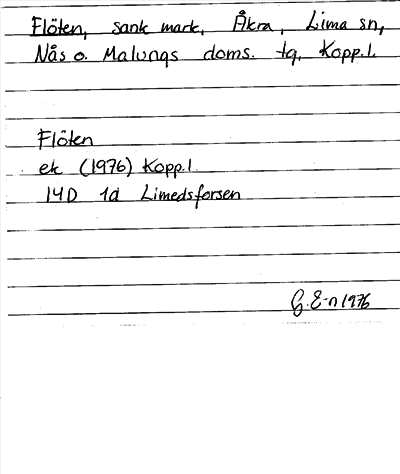 Flöten, sank mark, Åkra, Lima sn,
Nås o. Malungs doms. tg, Kopp.l.
Flöten
ek (1976) Kopp.l.
14D 1d Limedsforsen
G. E-n 1976